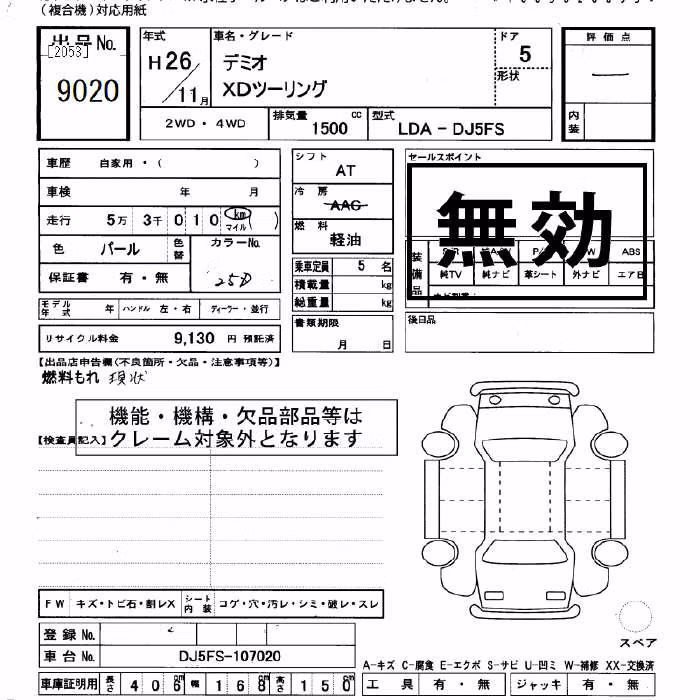 (複合機)対応用紙
出品No.
[2053]
9020
年式
H26/11月
車名・グレード
デミオ
XDツーリング
ドア
5
形状
評価点
―
内装
2WD・4WD
排気量
1500 cc
型式
LDA-DJ5FS
車歴 自家用・( )
車検 年 月
走行 5万 3千 0 1 0 (km マイル)
色 パール 色替 カラーNo. 25D
保証書 有・無
シフト
AT
冷房
AAC
燃料
軽油
乗車定員 5 名
積載量 kg
総重量 kg
セールスポイント
無効
装備品 ABS
純TV 純ナビ 革シート 外ナビ エアB
モデル年式 年 ハンドル 左・右 ディーラー・並行
リサイクル料金 9,130 円 預託済
書類期限
月 日
後日品
【出品店申告欄(不良箇所・欠品・注意事項等)】
燃料もれ 現状
機能・機構・欠品部品等は
クレーム対象外となります
【検査員記入】
FW キズ・トビ石・割レX シート内装 コゲ・穴・汚レ・シミ・破レ・スレ
登録No.
車台No. DJ5FS-107020
車庫証明用 長さ 406cm 幅 168cm 高さ 150cm
スペア
A-キズ C-腐食 E-エクボ S-サビ U-凹ミ W-補修 XX-交換済
工具 有・無 ジャッキ 有・無